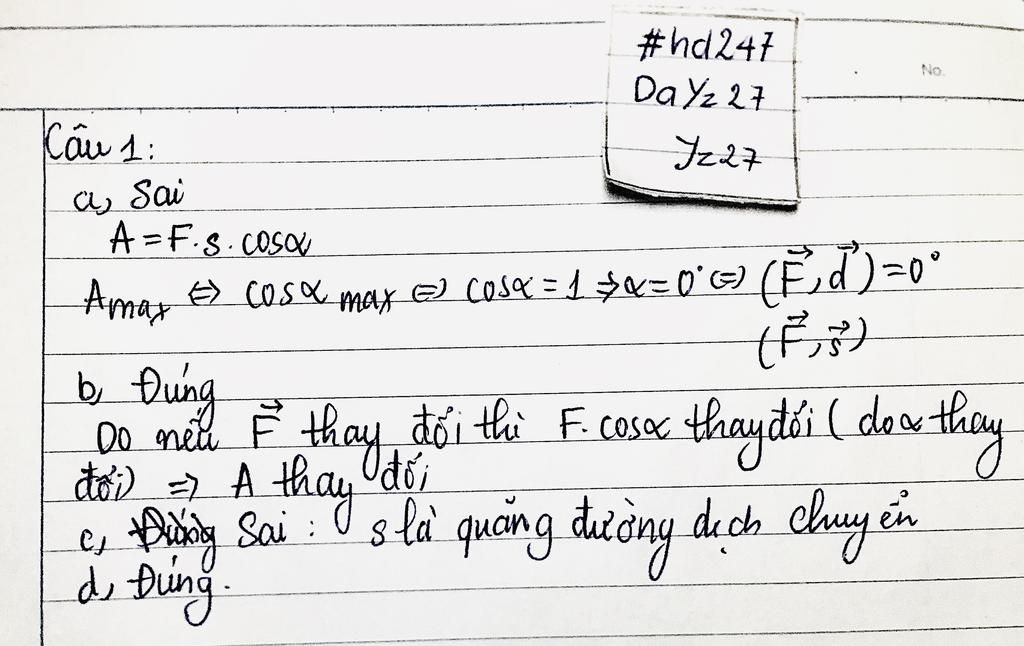 #hd247
DaYz27
Yz27
No.
Câu 1:
a, Sai
A = F.s.cosα
Amax ⇔ cosα max ⇔ cosα = 1 ⇒ α = 0° ⇔ (F⃗, d⃗) = 0°
(F⃗, s⃗)
b, Đúng
Do nếu F⃗ thay đổi thì F.cosα thay đổi (do α thay
đổi) ⇒ A thay đổi
c, Sai : s là quãng đường dịch chuyển
d, Đúng.